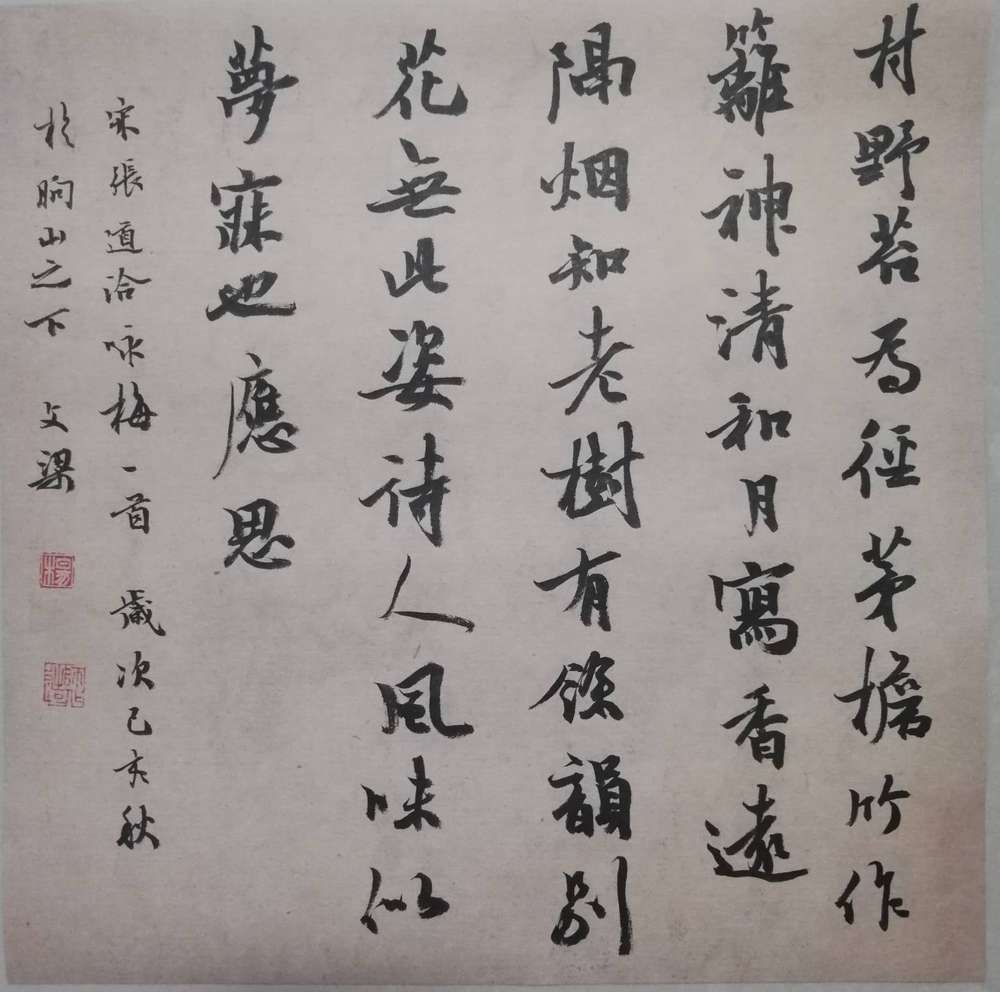 村野苔為徑茅檐竹作
籬神清和月寫香遠
隔烟知老樹有餘韻別
花無此姿詩人風味似
夢寐也應思
宋張道洽咏梅一首 歲次己亥秋
於朐山之下 文梁
楊